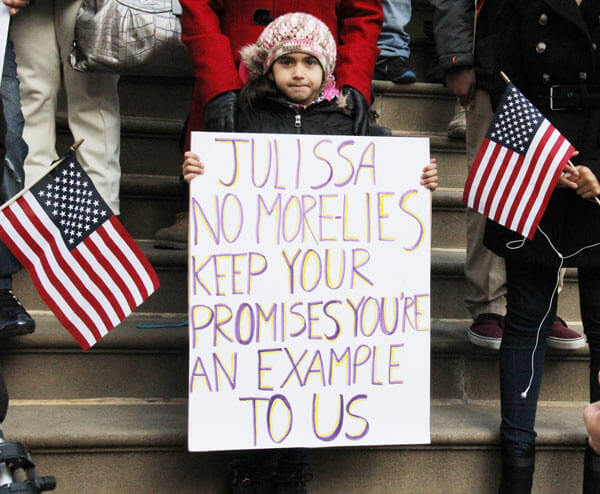 JULISSA
NO MORE-LIES
KEEP YOUR
PROMISES YOU'RE
AN EXAMPLE
TO US